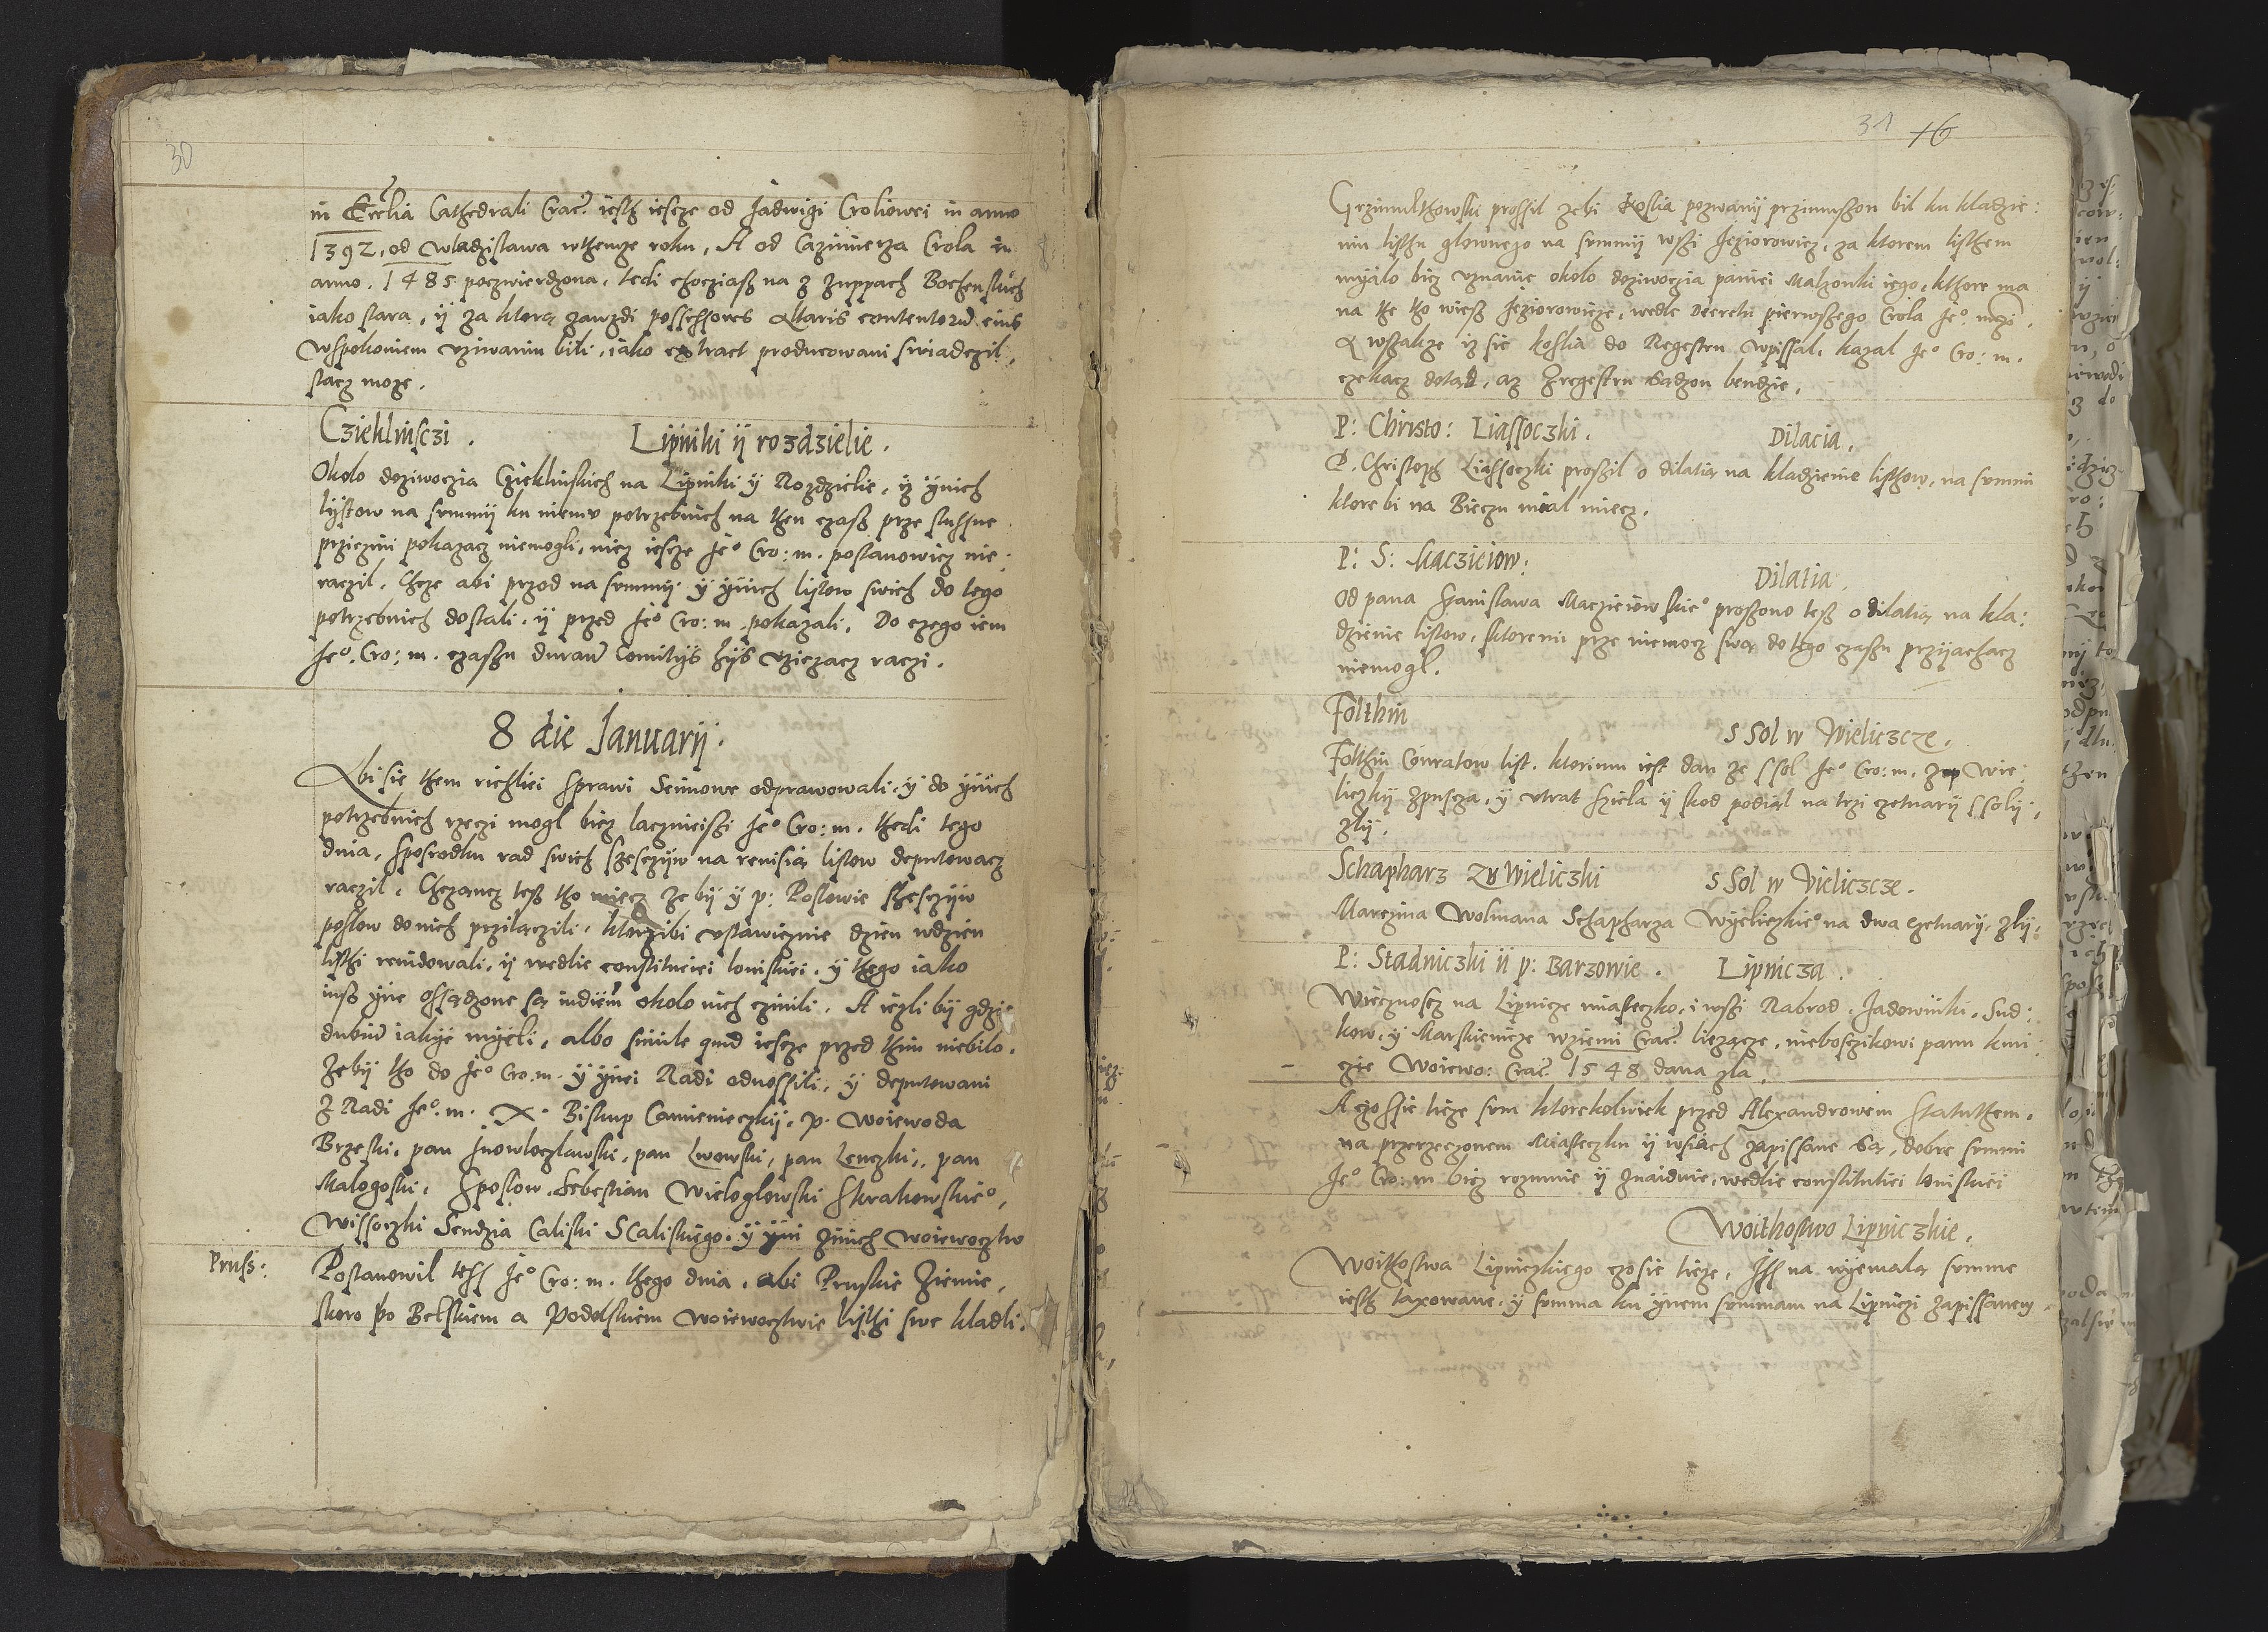 30
in Ecclia Cathedrali Crac. iesth iescze od Jadwigi Croliowei in anno
1392, od Wladzislawa wthemze roku, A od Cazimierza Crola in
anno. 1485 poczwierdzona, tedi chocziasz na z zuppach Bochenskich
iako stara, ÿ za ktorą zawzdi possessores Altaris contentorum eius
wspokoinem vziwaniu bili, iako extract producowani swiadczil,
stacz moze.
Czieklińsczi. Lipniki ÿ rozdzielie.
Okolo doziwoczia Czieklinskich na Lipniki ÿ Rozdzielie, iz ÿnich
lÿstow na summÿ ku niemv potrzebnich na then czasz prze slussne
prziczini pokazacz niemogli, nicz iescze Je° Cro: m. postanowicz nie:
raczil. Chcze abi przod na summÿ ÿ ÿnich listow swich do tego
potrzebnich dostali, ÿ przed Je° Cro: m. pokazali. Do czego iem
Je°. Cro: m. czaszu duran Comitÿs hÿs vziczacz raczi.
8 die Januarÿ.
Abi sie them richliei sprawi Seimowe odprawowali, ÿ do ÿnich
potrzebnich rzeczi mogl bicz laczнieiszi Je° Cro: m. thedi tego
dnia, sposrodku rad swich szesczÿw na revisią listow deputowacz
raczil. Chczancz tesz tho miecz ze bÿ ÿ p: Poslowie szesczÿw
poslow do nich przilaczili, ktorzibi vstawicznie dzien wdzien
listhi revidowali, ÿ wedlie constituciei loniskiei, ÿ thego iako
insz ÿne ossądzone są indiem okolo nich czinili. A iezli bÿ gdzie
dubium iakÿe mÿeli, albo simile quid iescze przed thim niebilo,
zebÿ tho do Je° Cro. m. ÿ ÿnei Radi odnossili, ÿ deputowani
z Radi Je°. m. X. Biskup Camienieczkÿ, p. woiewoda
Brzeski, pan Inowloczlawski, pan Lwowski, pan Lenczki, pan
Malogoski, sposlow, Sebestian Wieloglowski skrakowskie°,
Wissoczki Sendzia Caliski Scaliskiego, ÿ ÿni zinich woiewocztw
Pruss: Postanowil tess Je° Cro: m. thego dnia, abi Pruskie ziemie,
skoro po Belskiem a Podolskiem woiewocztwie listhi swe kladli.
31 16
Grzimulthowski prossil zebi Koslia pozwanÿ przimuszon bil ku kladzie:
niu listhu glownego na summÿ wszi Jeziorowicz, za ktorem listhem
mÿalo bicz vznanie okolo doziwoczia paniei Malzonki iego, kthore ma
na the tho wiesz Jeziorowicze, wedle Decretu pierwszego Crola Je°. mczi.
A wszakze iz sie Koslia do Regestru wpissal, kazal Je° Cro: m.
czekacz dotąd, az zregestru sądzon bendzie.
P: Christo: Liassoczki. Dilacia.
P. Christoph Liassoczki prosszil o dilatią na kladzienie listhow, na summi
ktore bi na Bieczu mial miecz.
P: S: Macziciow: Dilatia.
Od pana Stanislawa Macziciowskie° proszono tesz o dilatią na kla:
dzienie listow, ktoremi prze niemocz swą do tego czaszu przÿachacz
niemogl.
Folthin s Sol w Wieliczcze.
Folthin Conratow list. ktoriem iest dan ze ssol Je° Cro: m. zup Wie:
liczkÿ zpuscza, ÿ vtrat sziela ÿ skod podial na trzi czetnarÿ ssolÿ,
zlÿ.
Schapharz zu Wieliczki s Sol w Vieliczcze.
Marczina Wolmana Schapharza Wÿeliczkie° na dwa czetnarÿ, zlÿ.
P: Stadniczki ÿ p: Barzowie. Lipnicza.
Wiecznoscz na Lipnicze miasteczko, i wszi Rabrod, Jadowniki, Sud:
kow, ÿ Marskienicze wziemi Crac. liezącze, nieboszczikowi panu kmi
czie Woiewo: Crac. 1548 dana zla.
A czo ssie ticze sum ktorekolwiek przed Alexandrowem Statuthem,
na przerzeczonem Miasteczku ÿ wsiach zapissane są, dobre summi
Je° Cro: m. bicz rozumie ÿ znaiduie, wedlie constitutiei loniskiei
Woithostwo Lipniczkie.
Woithostwa Lipniczkiego czo sie ticze, Iss na niemalą summe
iesth taxowane, ÿ summa ku ÿnem summam na Lipniczi zapissanem